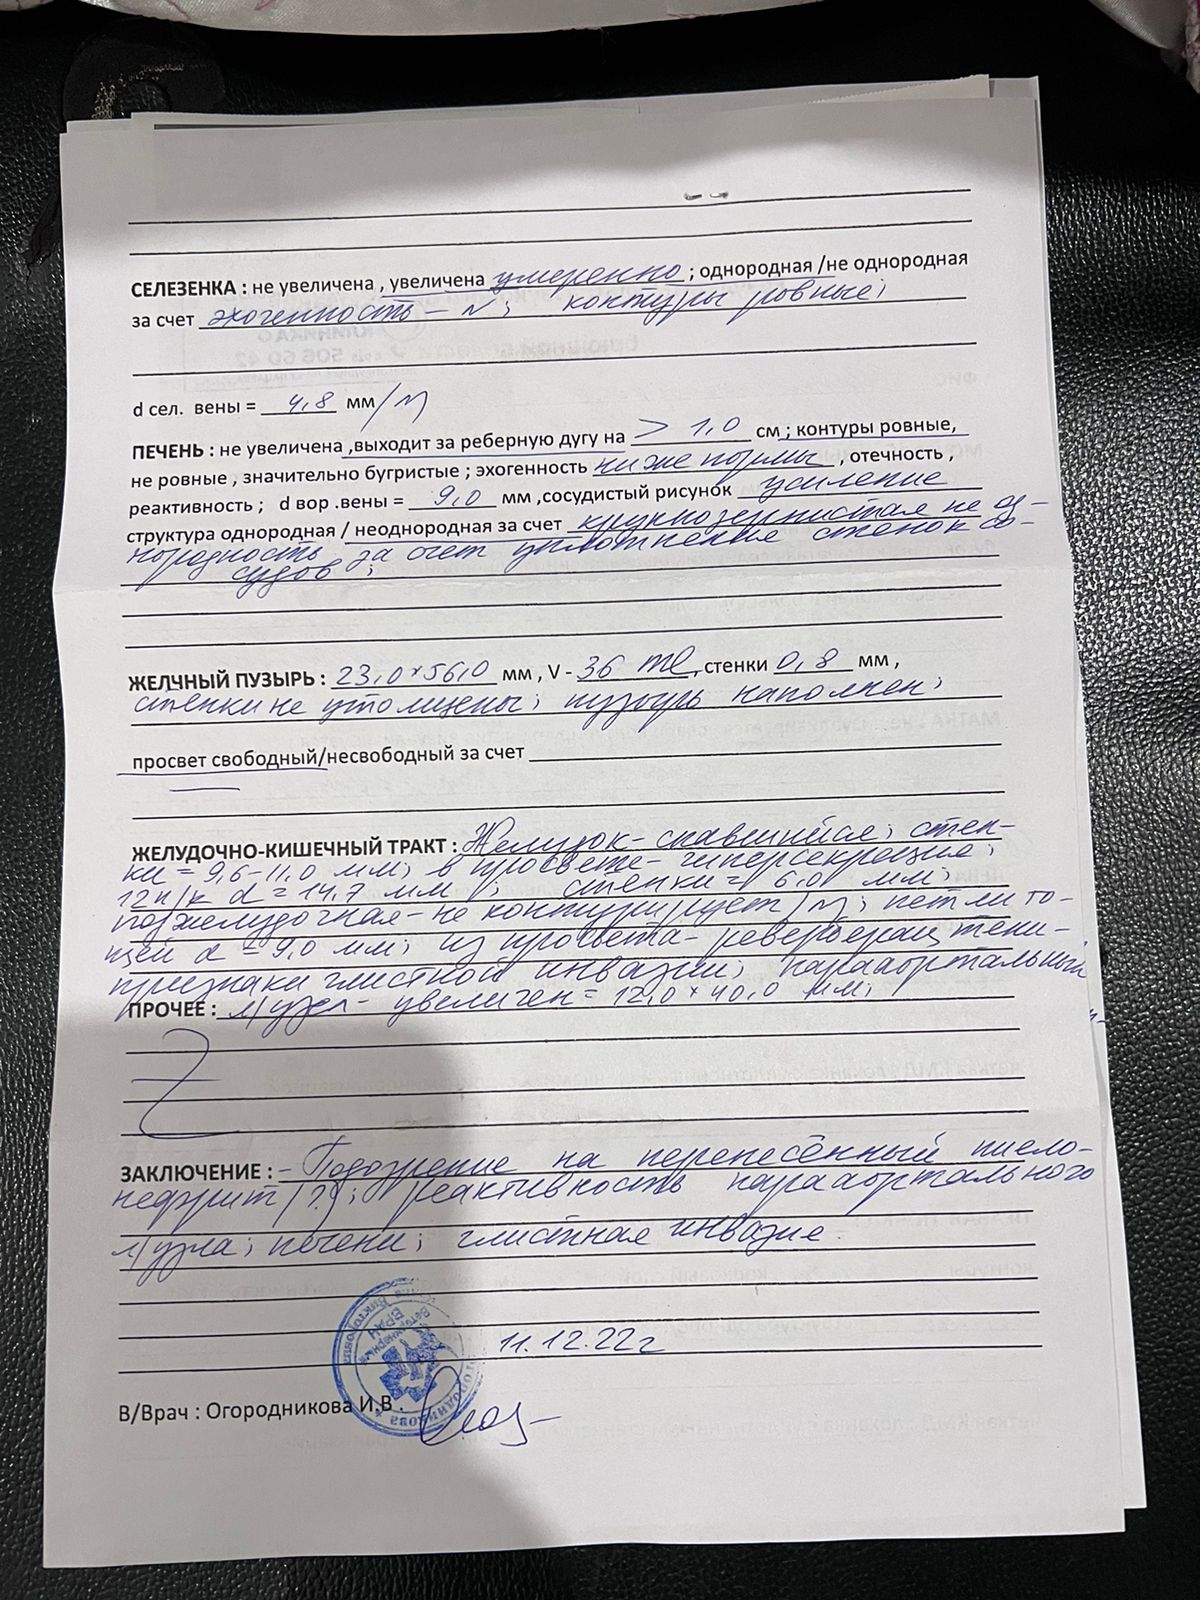 СЕЛЕЗЕНКА : не увеличена , увеличена умеренно ; однородная /не однородная
за счет эхогенность – N ; контуры ровные ;
d сел. вены = 4,8 мм /N
ПЕЧЕНЬ : не увеличена ,выходит за реберную дугу на > 1,0 см ; контуры ровные,
не ровные , значительно бугристые ; эхогенность ниже нормы , отечность ,
реактивность ; d вор .вены = 9,0 мм ,сосудистый рисунок усиление
структура однородная / неоднородная за счет крупнозернистая не од-
нородность за счет уплотнение стенок со-
судов ;
ЖЕЛЧНЫЙ ПУЗЫРЬ : 23,0 × 56,0 мм , V - 36 ml , стенки 0,8 мм ,
стенки не утолщены ; пузырь наполнен ;
просвет свободный/несвободный за счет
ЖЕЛУДОЧНО-КИШЕЧНЫЙ ТРАКТ : Желудок – спавшийся ; стен-
ки = 9,6 – 11,0 мм ; в просвете – гиперсекреция ;
12п/к d = 14,7 мм ; стенки = 6,0 мм ;
поджелудочная – не контурирует /N ; петли то-
щей d = 9,0 мм ; из просвета – реверберац тени –
признаки глистной инвазии ; парааортальный
ПРОЧЕЕ : л/узел – увеличен = 12,0 × 40,0 мм ;
ЗАКЛЮЧЕНИЕ : – Подозрение на перенесённый пиело-
нефрит (?) ; реактивность парааортального
л/узла ; печени ; глистная инвазие .
11.12.22 г
В/Врач : Огородникова И.В .